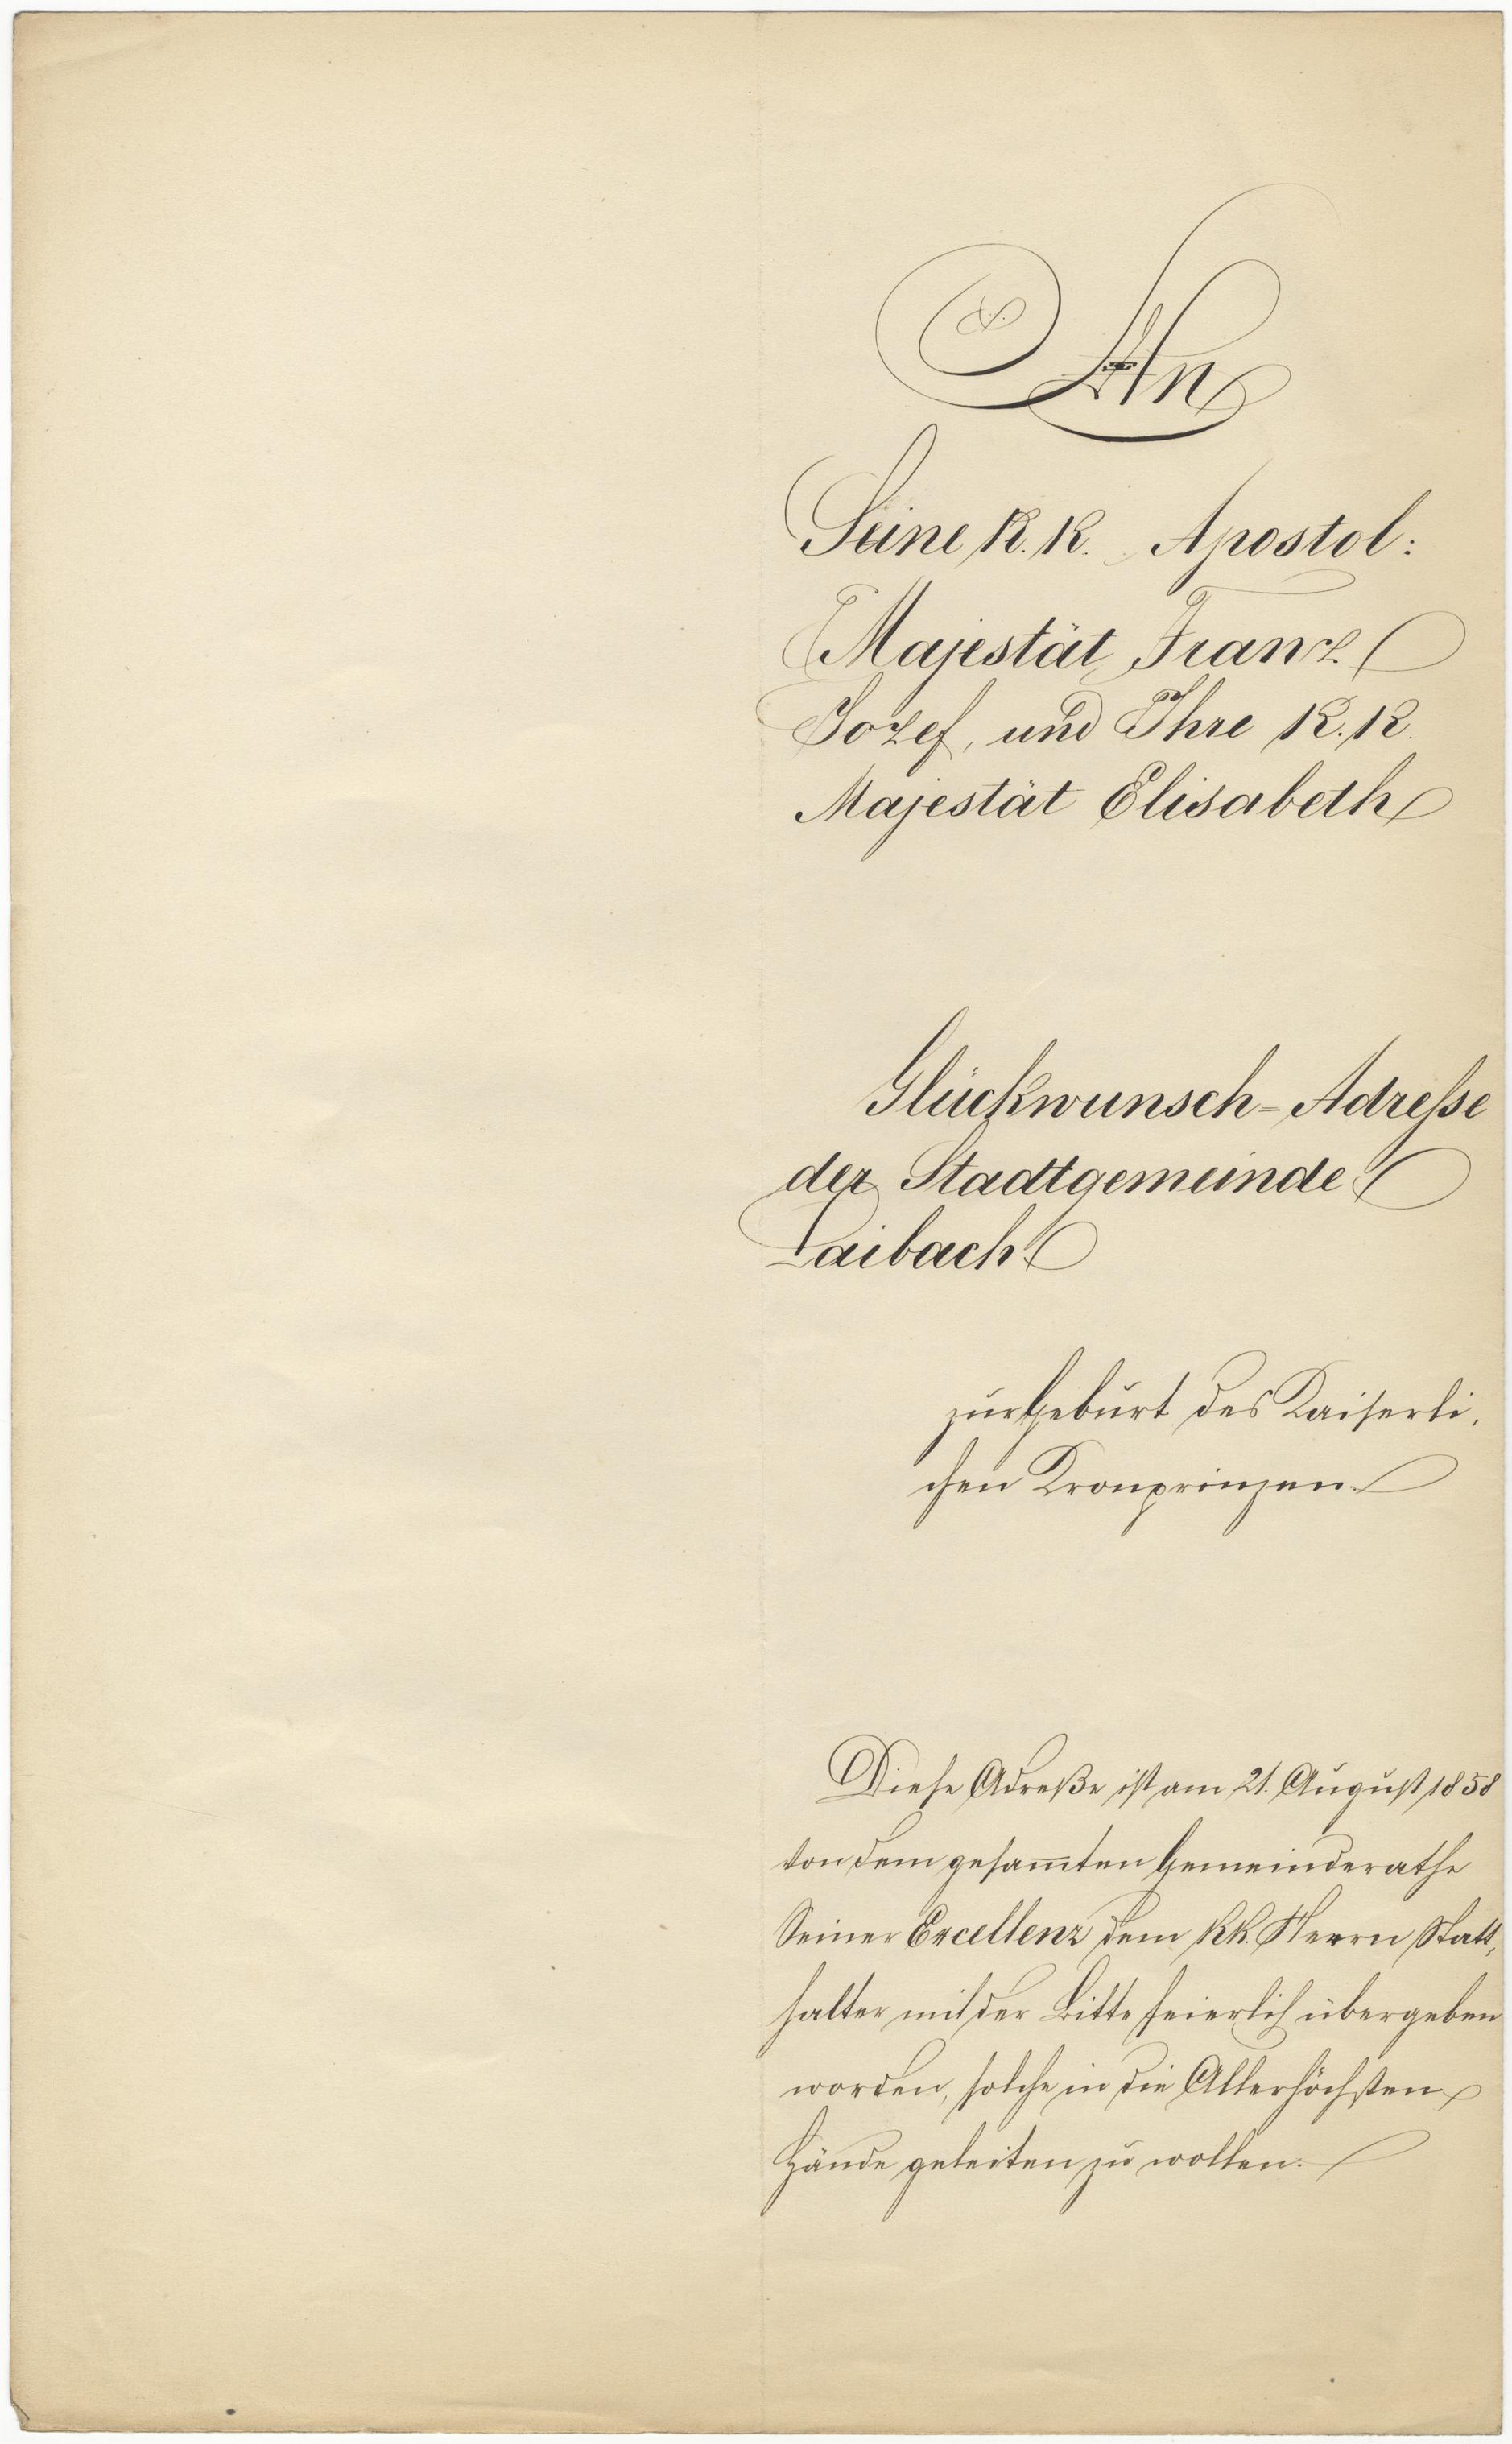 An
Seine K. K. Apostol:
Majestät Franz
Josef, und Ihre K. K.
Majestät Elisabeth
Glückwunsch-Adresse
der Stadtgemeinde
Laibach
zur Geburt des Kaiserli,
chen Kronprinzen.
Diese Adreße ist am 21. August 1858
von dem gesam̅ten Gemeinderathe
Seiner Excellenz dem k.k. Herrn Statt,
halter mit der Bitte feierlich übergeben
worden, solche in die Allerhöchsten
Hände geleiten zu wollen.